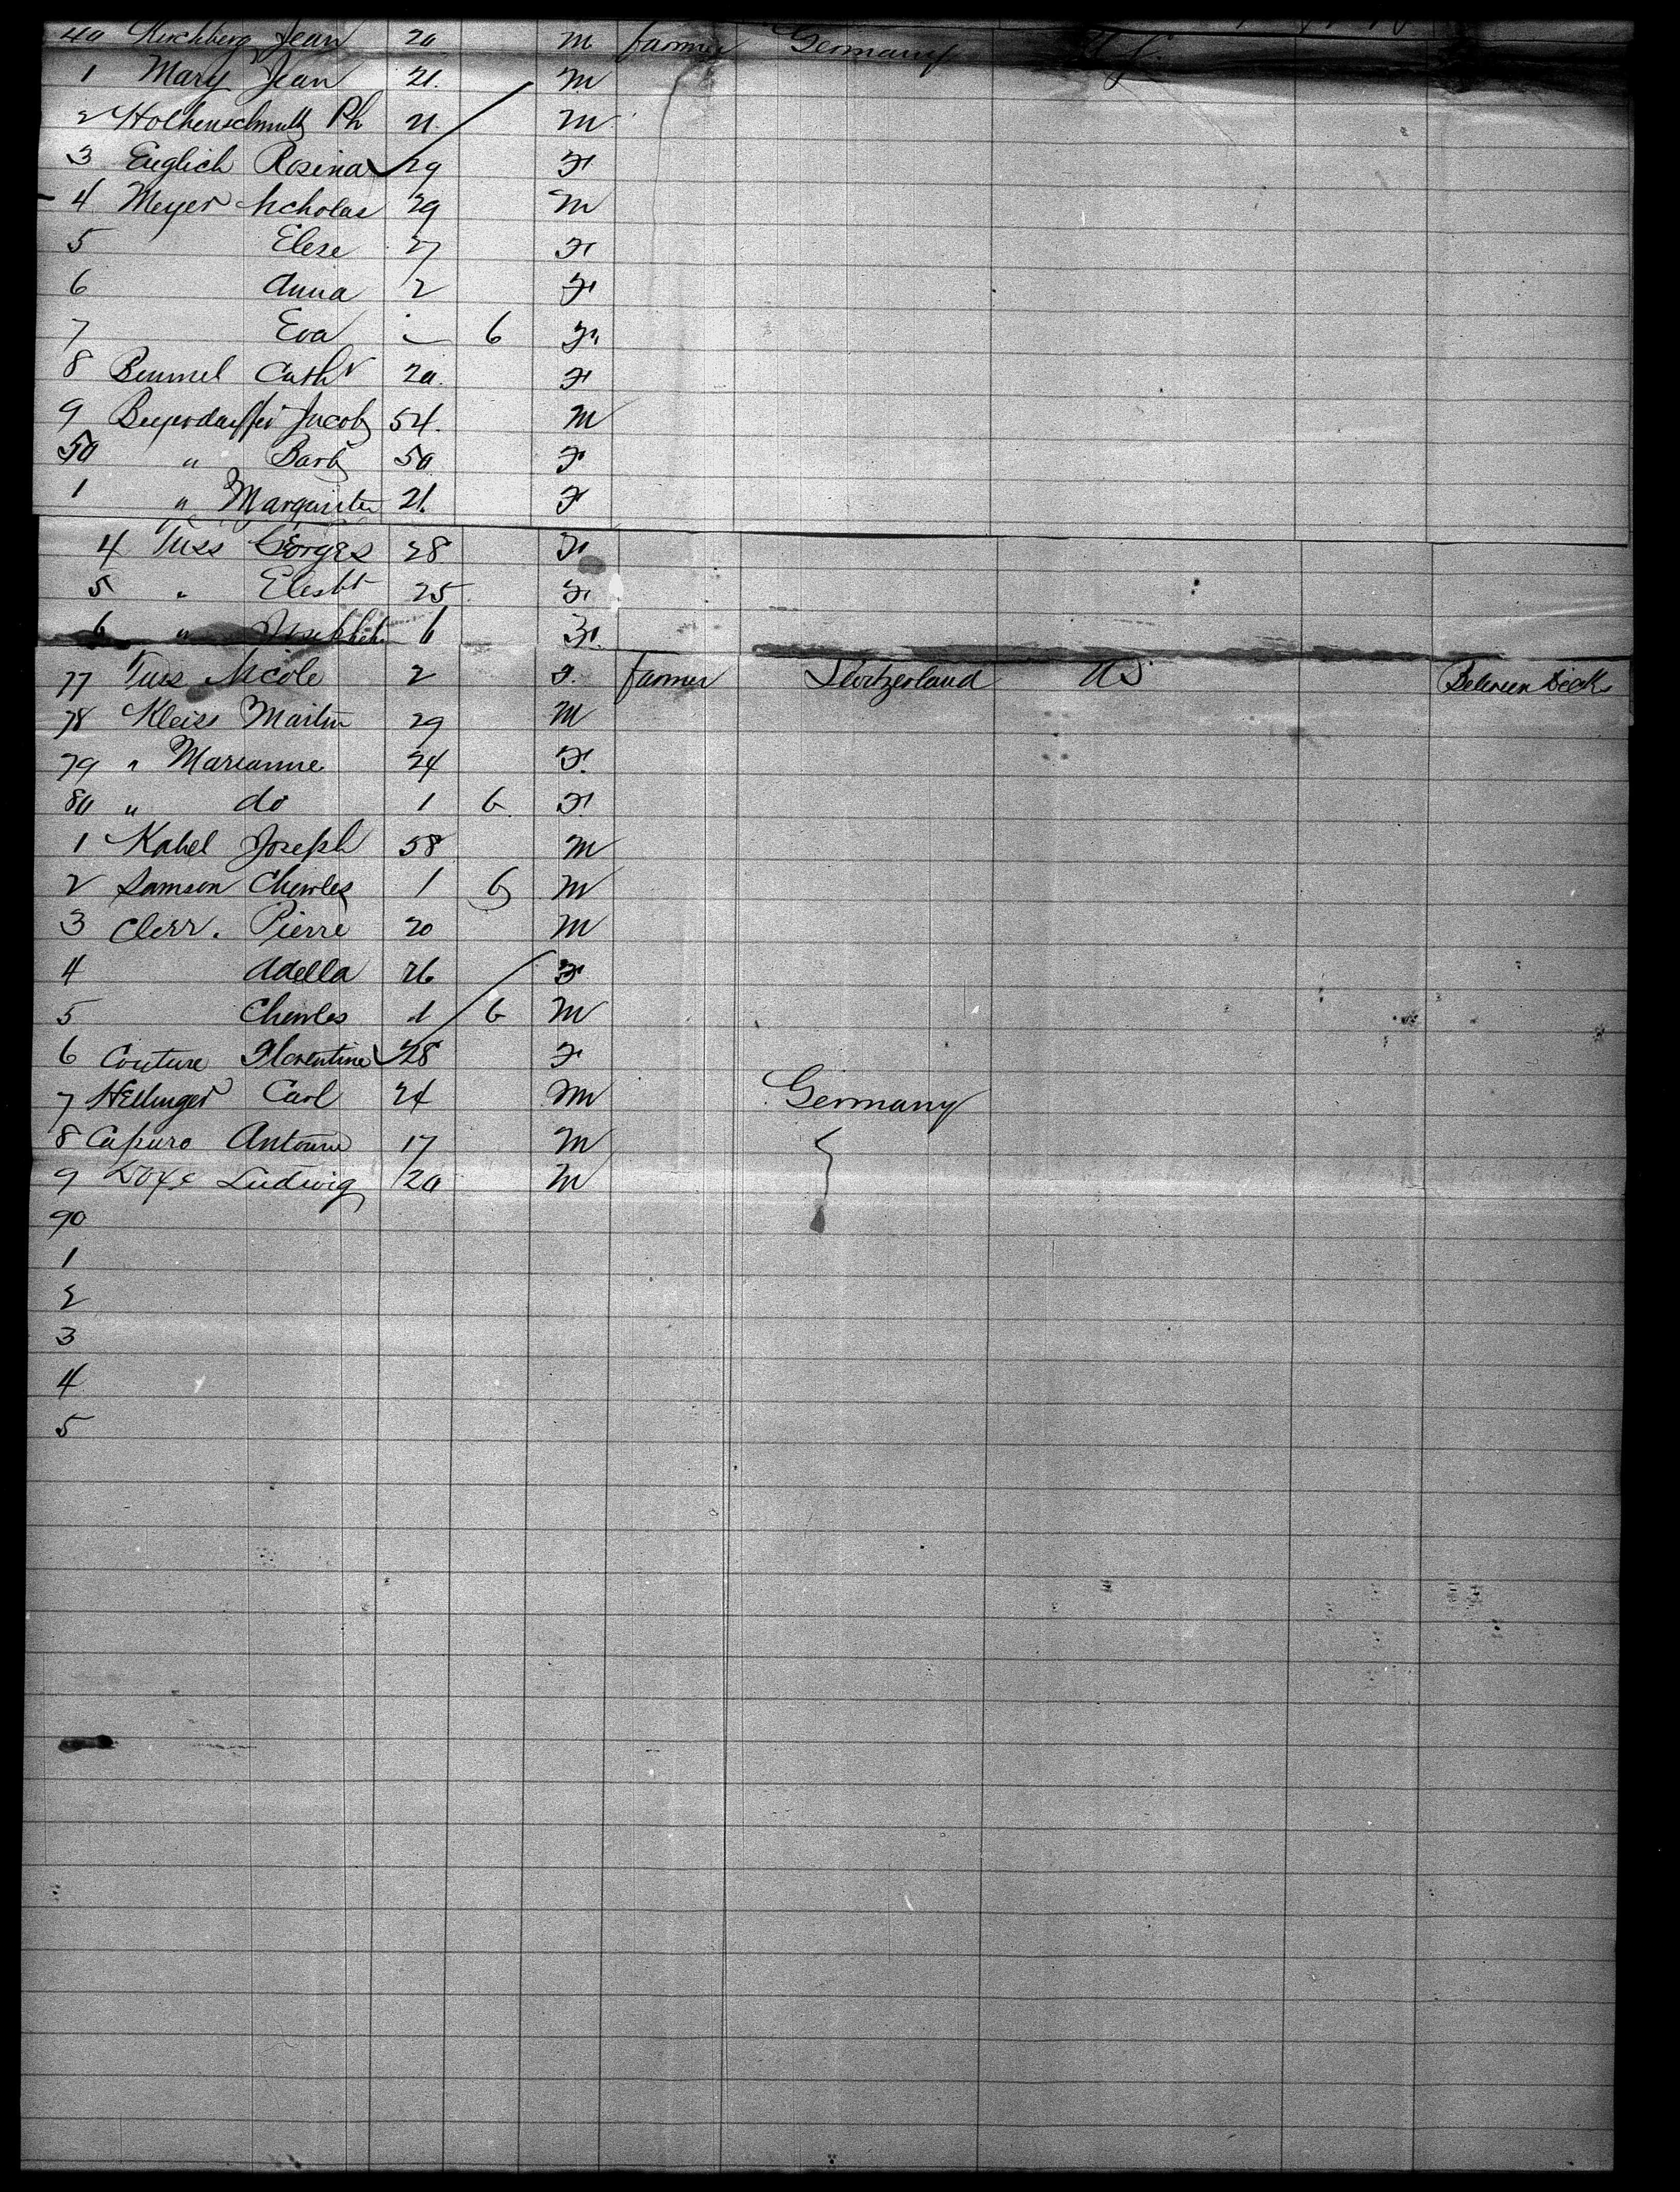 40 Kirchberg Jean 20 m farmer Germany U S.
1 Mary Jean 21. m
2 Holhenschmitt Ph 21. m
3 Euglich Rosina 29 F
4 Meyer Nicholas 29 m
5 Elese 27 F
6 Anna 2 F
7 Eva - 6 F.
8 Bemmel Cath 20. F
9 Jacob 54. m
50 " Barb 50 F
1 " Marguerite 21. F
4 Tuss Georges 28. F
5 " Elesbt 25 F.
6 " 6 F.
77 Tuss Nicole 2 F. farmer Switzerland US Between Decks
78 Kleiss Martin 29 m
79 " Marianne 24 F.
80 " do 1 6. F.
1 Kahel Joseph 58 m
2 Samson Cherles 1 6 m
3 Clerr. Pierre 20 m
4 Adella 26 F
5 Cherles 1 6 m
6 Couture Florentine 28 F
7 Hellinger Carl 24 m Germany
8 Capuro Antoine 17 m
9 Ludwig 20 m
90
1
2
3
4
5